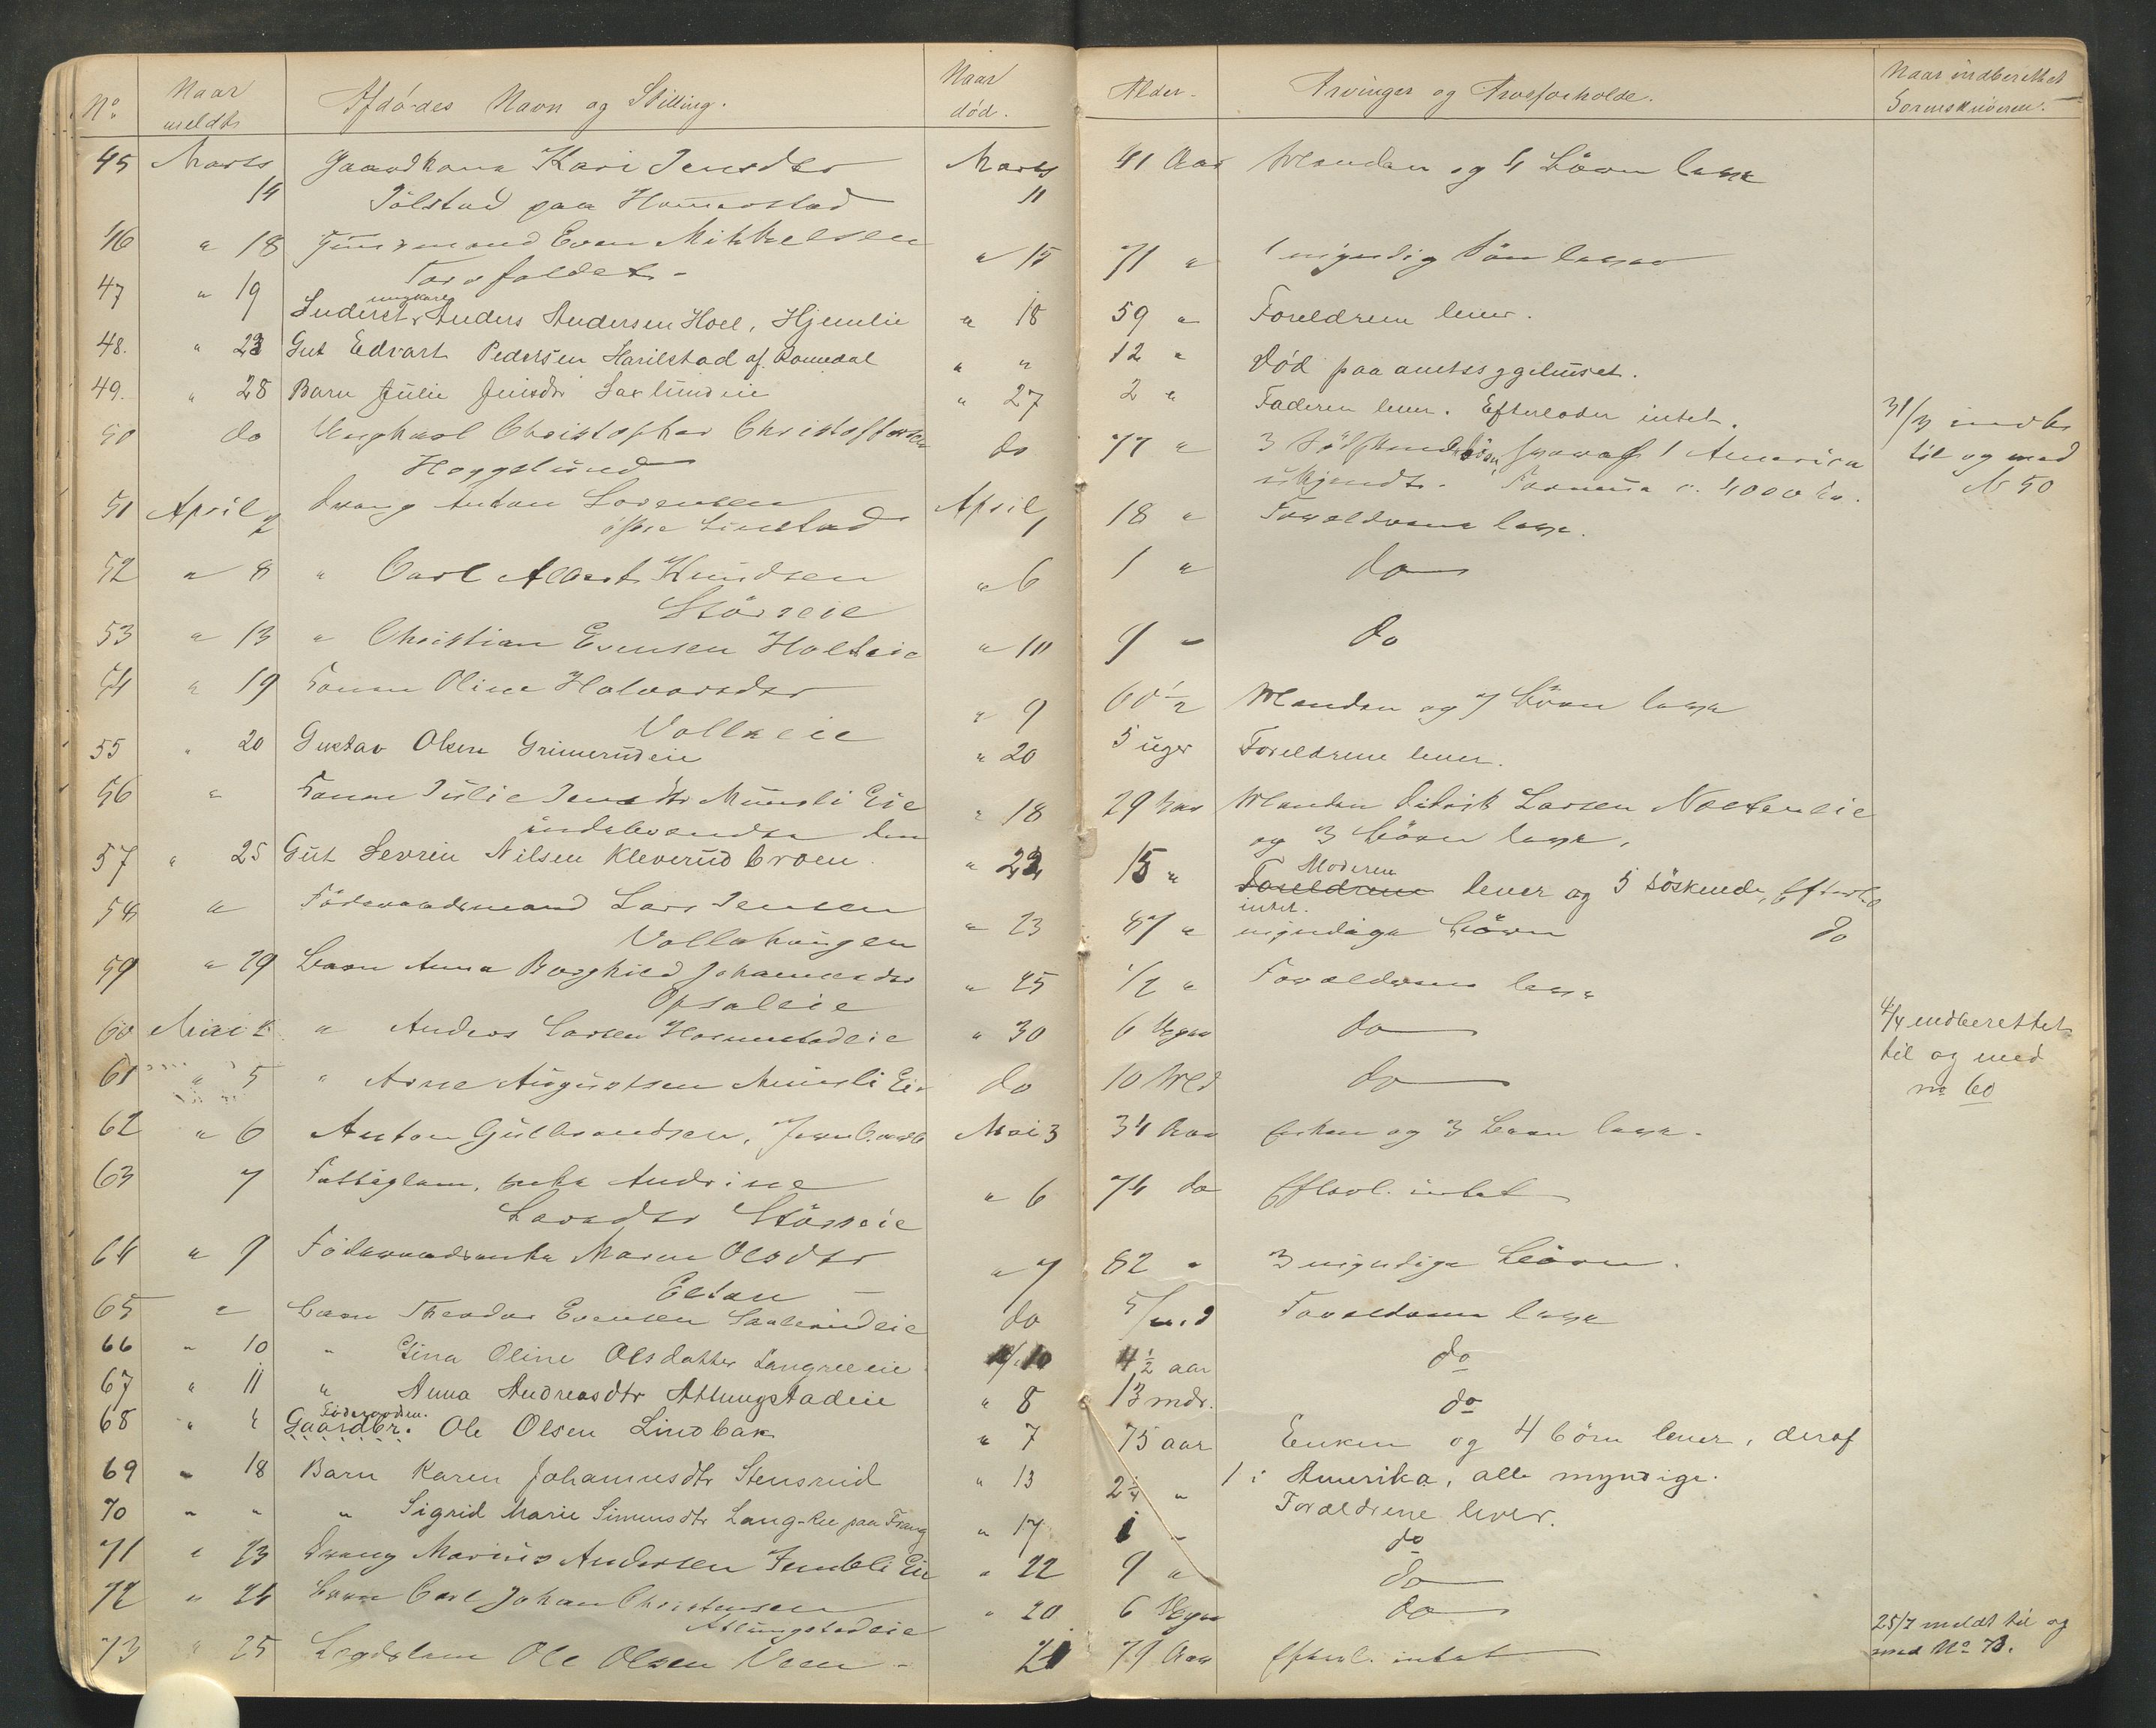 No Naar meldt Afdødes Navn og Stilling. Naar død. Alder. Arvinger og Arveforholde. Naar indberettet Sorenskriveren.
45 Marts Gaardkone Kari Jensdtr Marts 41 Aar Manden og 4 Börn leve
14 Tölstad paa Hommerstad 11
46 " 18 Even Mikkelsen " 15 71 " 1 myndig Sön lever
Torsfaldet
47 " 19 ungkarl
Anders Andersen Hoel, Hjemlie " 18 59 " Foreldrene lever.
48. " 23 Gut Edvart Pedersen Harilstad af Romedal " " 12 " Död paa amtssygehuset.
49. " 28 Barn Julie Jensdr Saxlundeie " 27 2 " Faderen lever. Efterlader intet.
50 do Ungkarl Christopher Christoffersen do 77 " 3 hvoraf 1 Amerika
Hoggelund ukjendt. Formue c. 4000 kr.
31/3 indb.
til og med
N 50
51 April 2 Dreng Anton Sorensen April 1 18 " Forældrene leve.
östre Linstad
52 " 8 " Carl Albert Knudsen " 6 1 " do
Störseie
53 " 13 " Christian Evensen Holteie " 10 9 " do
54 " 19 Konen Oline Halvorsdtr " 9 60 1/2 Manden og 7 börn leve
Volleeie
55 " 20 Gustav Olsen Grimerudeie " 20 5 uger Foreldrene lever.
56 " Konen Julie Jensdtr Munsli Eie " 18 29 Aar Manden Didrik Larsen
og 3 börn leve.
57 " 25 Gut Sevrin Nilsen Kleverudbroen. " 22 15 " Moderen
Foreldrene lever og 5 söskende, Efterl.
intet.
58 " Föderaadsmand Lars Jensen " 23 87 " myndige Börn do
Vollehaugen
59 " 29 Barn Anna Borghild Johannesdtr " 25 1/2 " Forældrene leve
Opsaleie
60 Mai 2 " Anders Larsen Hommstadeie " 30 6 Uger do
4/5 indberettet
til og med
no 60
61 " 5 " Arne Augustsen Munsli Eie do 10 Md do
62 " 6 Anton Gulbrandsen, Mai 3 34 Aar Enken og 3 Barn leve.
63 7 Fattiglem, enke Andrine " 6 74 do Efterl. intet
Larsdtr Störseie
64 " 9 Föderaadsenke Maren Olsdtr " 7 82 " 3 myndige Börn.
Eltan
65 " Barn Theodor Evensen Saxlundeie do 5/md Forældrene leve
66 " 10 " Gina Oline Olsdatter Langreeeie " 10 4 1/2 aar do
67 " 11 " Anna Andreasdtr Atlungstadeie " 8 13 mdr. do
68 " " Föderaadsm.
Gaardbr. Ole Olsen Lindbak " 7 75 aar Enken og 4 börn lever, deraf
1 i Amerika, alle myndige.
69 " 18 Barn Karen Johannesdtr Stensrud " 13 2 1/4 " Forældrene lever.
70 " " " Sigrid Marie Simensdtr Lang-Ree paa Frang " 17 1 " do
71 " 23 Dreng Marius Andersen Jemli Eie " 22 9 " do
72 " 24 Barn Carl Johan Christensen " 20 6 Uger do
Atlungstadeie
73 " 25 Legdslem Ole Olsen Veen 21 79 Aar Efterl. intet
25/5 meldt til og
med No 73.